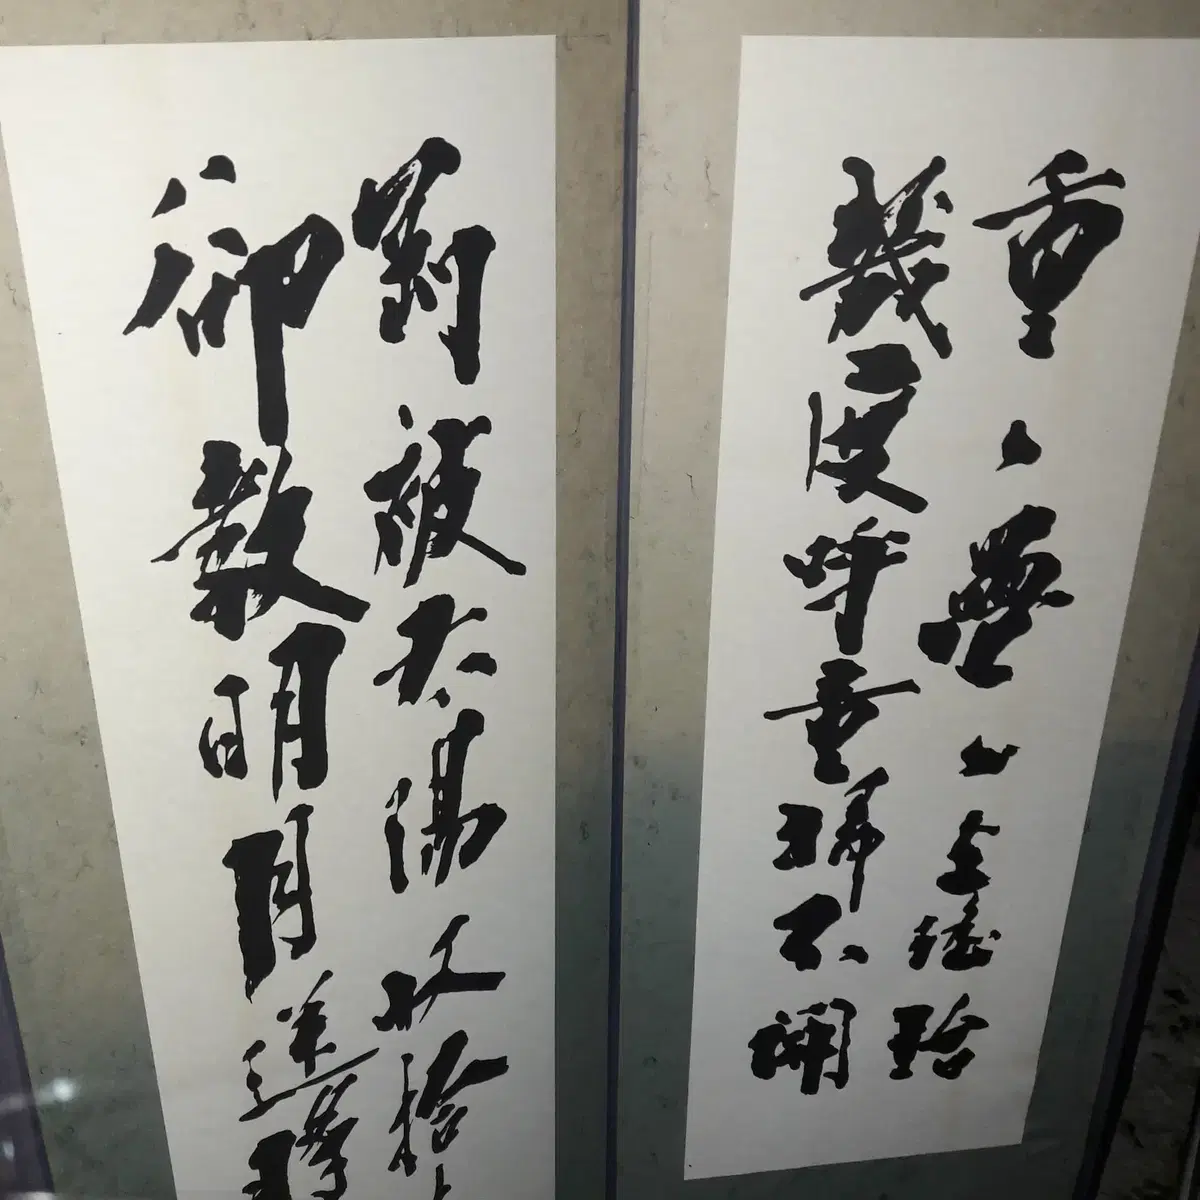 重々疊々上瑤臺
幾度呼童掃不開
剛被太陽收拾
卻教明月送將